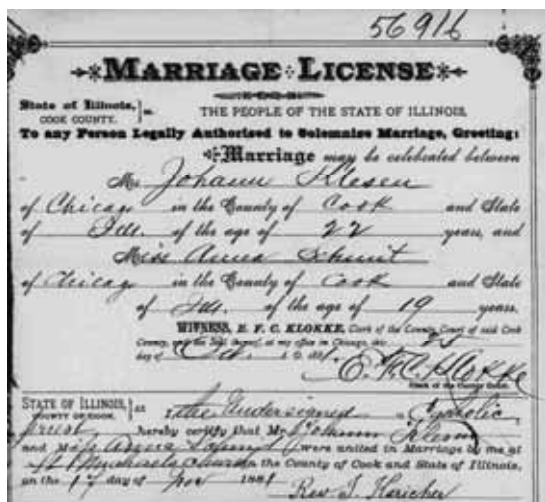 56916
MARRIAGE LICENSE
State of Illinois, COOK COUNTY. } ss. THE PEOPLE OF THE STATE OF ILLINOIS,
To any Person Legally Authorized to Solemnize Marriage, Greeting:
Marriage may be celebrated between
Mr Johann Klesen
of Chicago in the County of Cook and State
of Ills. of the age of 22 years, and
Miss Anna Schmit
of Chicago in the County of Cook and State
of Ills. of the age of 19 years.
WITNESS, E. F. C. KLOKKE, Clerk of the County Court of said Cook
County, and the Seal thereof, at my office in Chicago, this 25
day of Oct. 1881.
E. F. C. Klokke
Clerk of the County Court.
STATE OF ILLINOIS, COUNTY OF COOK. } ss I, the Undersigned a Catholic
priest hereby certify that Mr Johann
and Miss Anna were united in Marriage by me at
St Michaels church in the County of Cook and State of Illinois,
on the 17 day of Nov 1881
Rev. J.